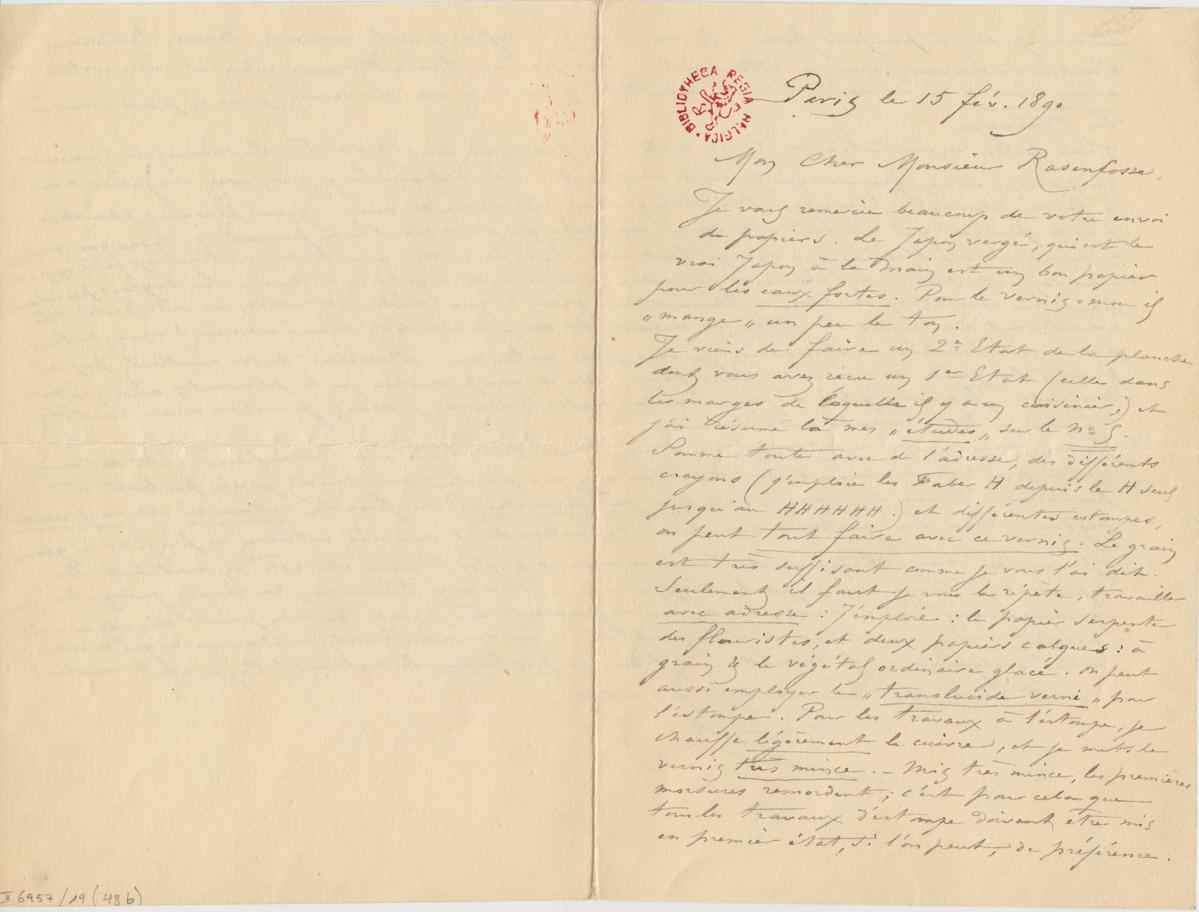 BIBLIOTHECA REGIA BELGICA
Paris le 15 fév. 1890
Mon Cher Monsieur Rasenfosse,
Je vous remercie beaucoup de votre envoi
de papiers. Le Japon vergé, qui est le
vrai Japon à la main est un bon papier
pour les eaux fortes. Pour le vernis-mou il
"mange" un peu le ton.
Je viens de faire un 2e Etat de la planche
dont vous avez reçu un 1er Etat (celle dans
les marges de laquelle il y a un cuisinier,) et
j'ai résumé là mes "études" sur le no 5.
Somme toute avec de l'adresse, des différents
crayons (j'emploie les Faber H depuis le H seul
jusqu'au HHHHHH.) et différentes estompes,
on peut tout faire avec ce vernis. Le grain
est très suffisant comme je vous l'ai dit.
Seulement il faut je vous le répète, travailler
avec adresse : J'emploie : le papier serpente
des fleuristes, et deux papiers calques : à
grain & le végétal ordinaire glacé. on peut
aussi employer le "translucide verni" pour
l'estompe. Pour les travaux à l'estompe, je
chauffe légèrement le cuivre, et je mets le
vernis très mince. – Mis très mince, les premières
morsures remordent ; c'est pour cela que
tous les travaux d'estompe doivent être mis
en premier état, si l'on peut, de préférence.
II 6957/19 (48b)